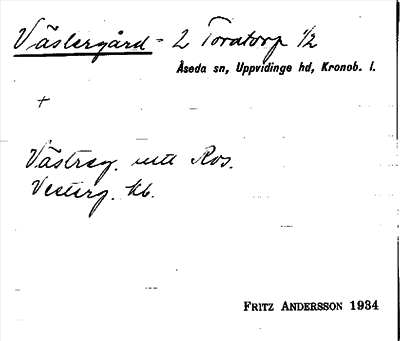 Västergård - 2 Toratorp 1/2
Åseda sn, Uppvidinge hd, Kronob. l.
+
Västreg. utt Ros.
Vesterg. kb.
FRITZ ANDERSSON 1934